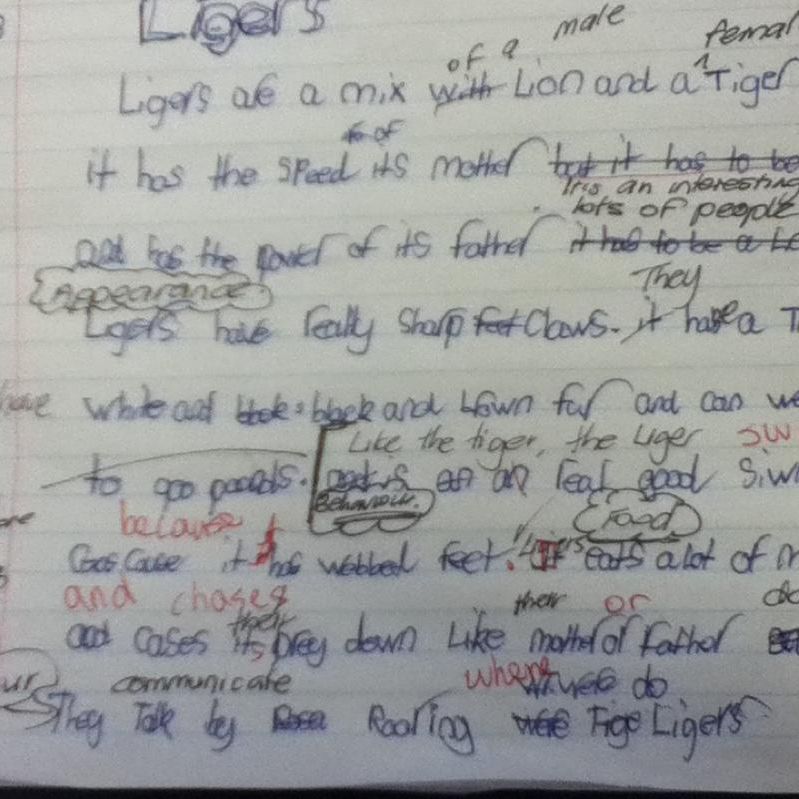 Ligers
of a male femal
Ligers are a mix with Lion and a Tiger
of
it has the speed its mother but it has to be
It is an interesting
lots of people
and has the power of its father it has to be a
Appearance
They
Ligers have really sharp feet Claws. it have a
have white and black and brown fur and can
Like the tiger, the Liger sw
to 900 pounds. an real good
Behaviour. Food
because
it has webbed feet. Ligers It eats a lot of
and chases their or
and cases its prey down like mother or Father
communicate where
They Talk by Roaring were Tige Ligers do